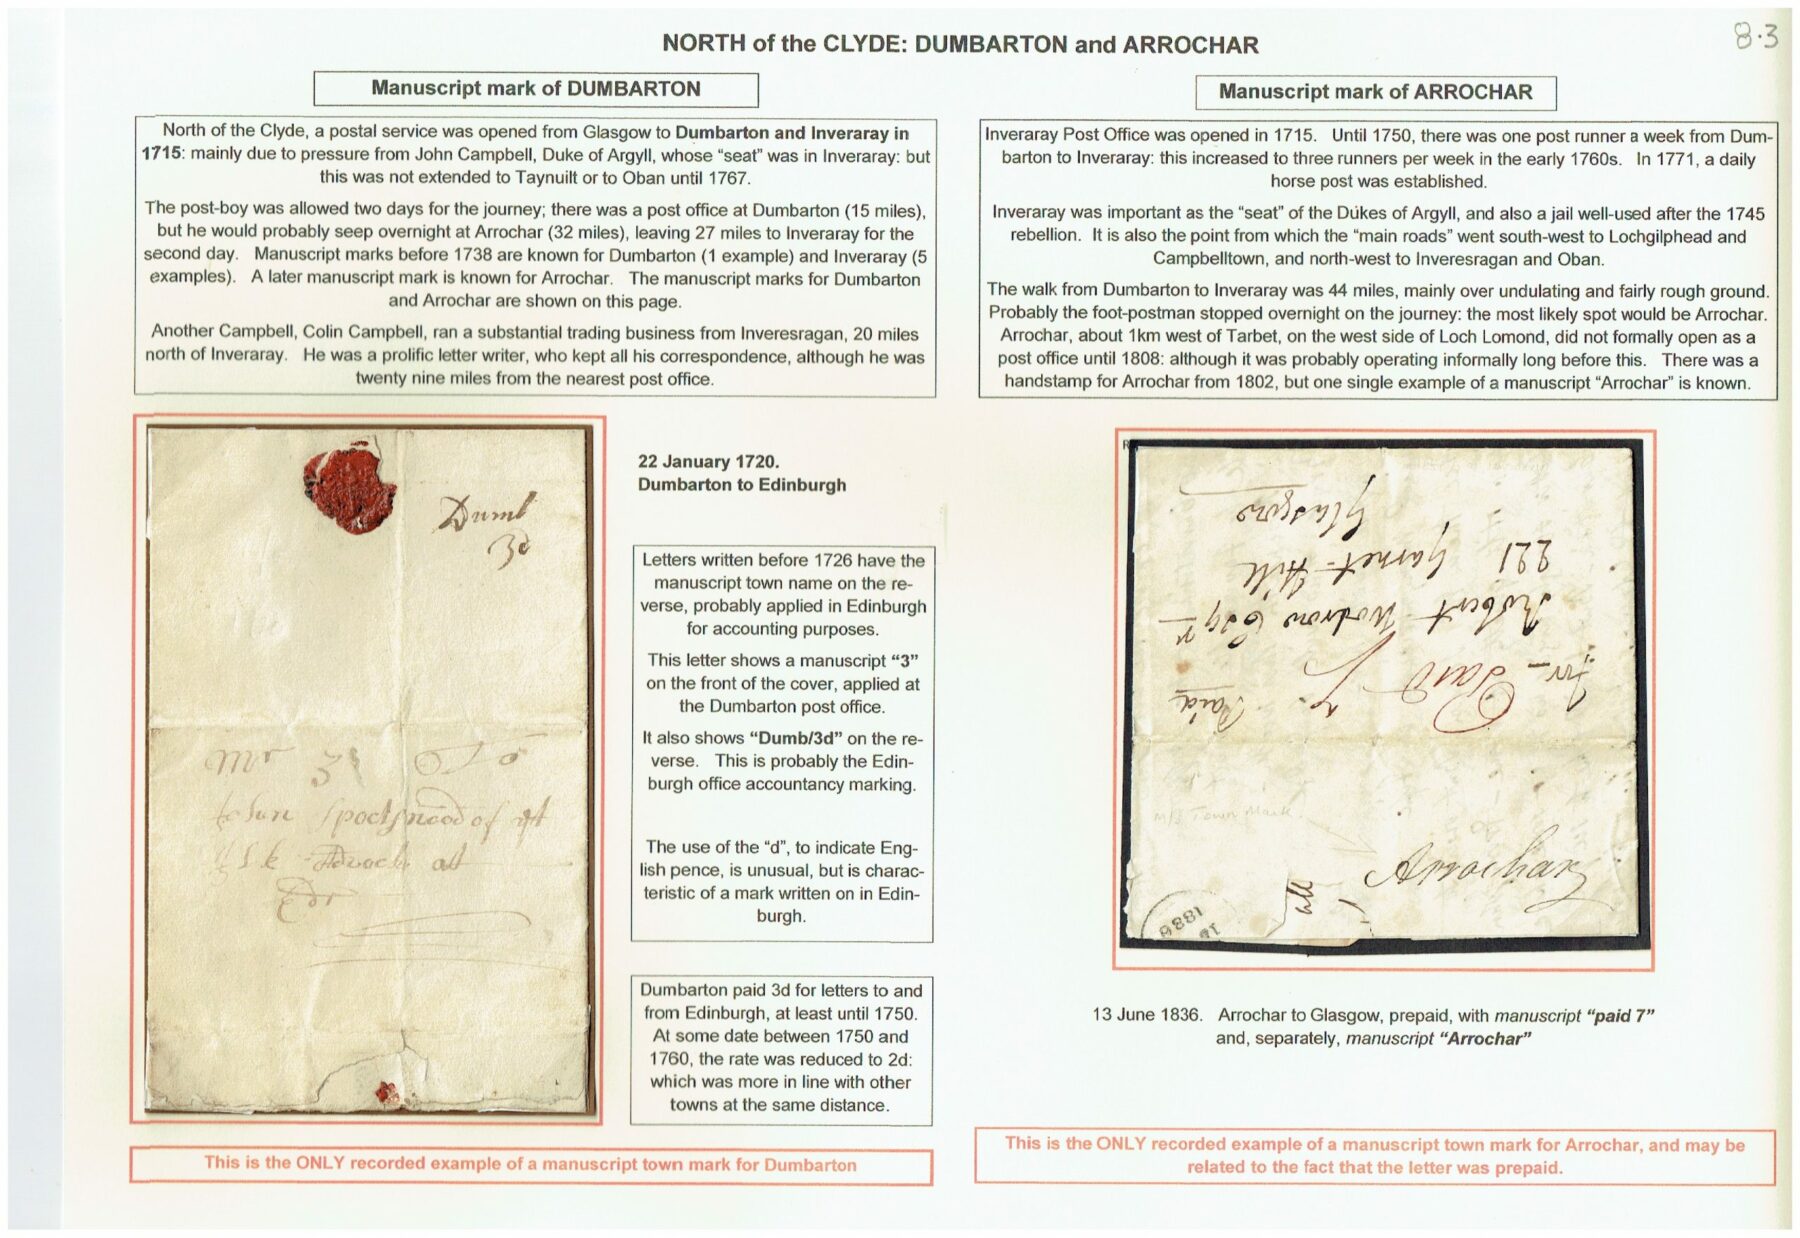 8.3
NORTH of the CLYDE: DUMBARTON and ARROCHAR
Manuscript mark of DUMBARTON
North of the Clyde, a postal service was opened from Glasgow to Dumbarton and Inveraray in
1715: mainly due to pressure from John Campbell, Duke of Argyll, whose “seat” was in Inveraray: but
this was not extended to Taynuilt or to Oban until 1767.
The post-boy was allowed two days for the journey; there was a post office at Dumbarton (15 miles),
but he would probably seep overnight at Arrochar (32 miles), leaving 27 miles to Inveraray for the
second day. Manuscript marks before 1738 are known for Dumbarton (1 example) and Inveraray (5
examples). A later manuscript mark is known for Arrochar. The manuscript marks for Dumbarton
and Arrochar are shown on this page.
Another Campbell, Colin Campbell, ran a substantial trading business from Inveresragan, 20 miles
north of Inveraray. He was a prolific letter writer, who kept all his correspondence, although he was
twenty nine miles from the nearest post office.
Dumb
3d
Mr 3 To
at
Edr
22 January 1720.
Dumbarton to Edinburgh
Letters written before 1726 have the
manuscript town name on the re-
verse, probably applied in Edinburgh
for accounting purposes.
This letter shows a manuscript “3”
on the front of the cover, applied at
the Dumbarton post office.
It also shows “Dumb/3d” on the re-
verse. This is probably the Edin-
burgh office accountancy marking.
The use of the “d”, to indicate Eng-
lish pence, is unusual, but is charac-
teristic of a mark written on in Edin-
burgh.
Dumbarton paid 3d for letters to and
from Edinburgh, at least until 1750.
At some date between 1750 and
1760, the rate was reduced to 2d:
which was more in line with other
towns at the same distance.
This is the ONLY recorded example of a manuscript town mark for Dumbarton
Manuscript mark of ARROCHAR
Inveraray Post Office was opened in 1715. Until 1750, there was one post runner a week from Dum-
barton to Inveraray: this increased to three runners per week in the early 1760s. In 1771, a daily
horse post was established.
Inveraray was important as the “seat” of the Dukes of Argyll, and also a jail well-used after the 1745
rebellion. It is also the point from which the “main roads” went south-west to Lochgilphead and
Campbelltown, and north-west to Inveresragan and Oban.
The walk from Dumbarton to Inveraray was 44 miles, mainly over undulating and fairly rough ground.
Probably the foot-postman stopped overnight on the journey: the most likely spot would be Arrochar.
Arrochar, about 1km west of Tarbet, on the west side of Loch Lomond, did not formally open as a
post office until 1808: although it was probably operating informally long before this. There was a
handstamp for Arrochar from 1802, but one single example of a manuscript “Arrochar” is known.
Paid
Paid 7
For
Robert Wodrow Esqr
221 Garnet-Hill
Glasgow
M/S Town Mark
Arrochar
13 June 1836. Arrochar to Glasgow, prepaid, with manuscript “paid 7”
and, separately, manuscript “Arrochar”
This is the ONLY recorded example of a manuscript town mark for Arrochar, and may be
related to the fact that the letter was prepaid.